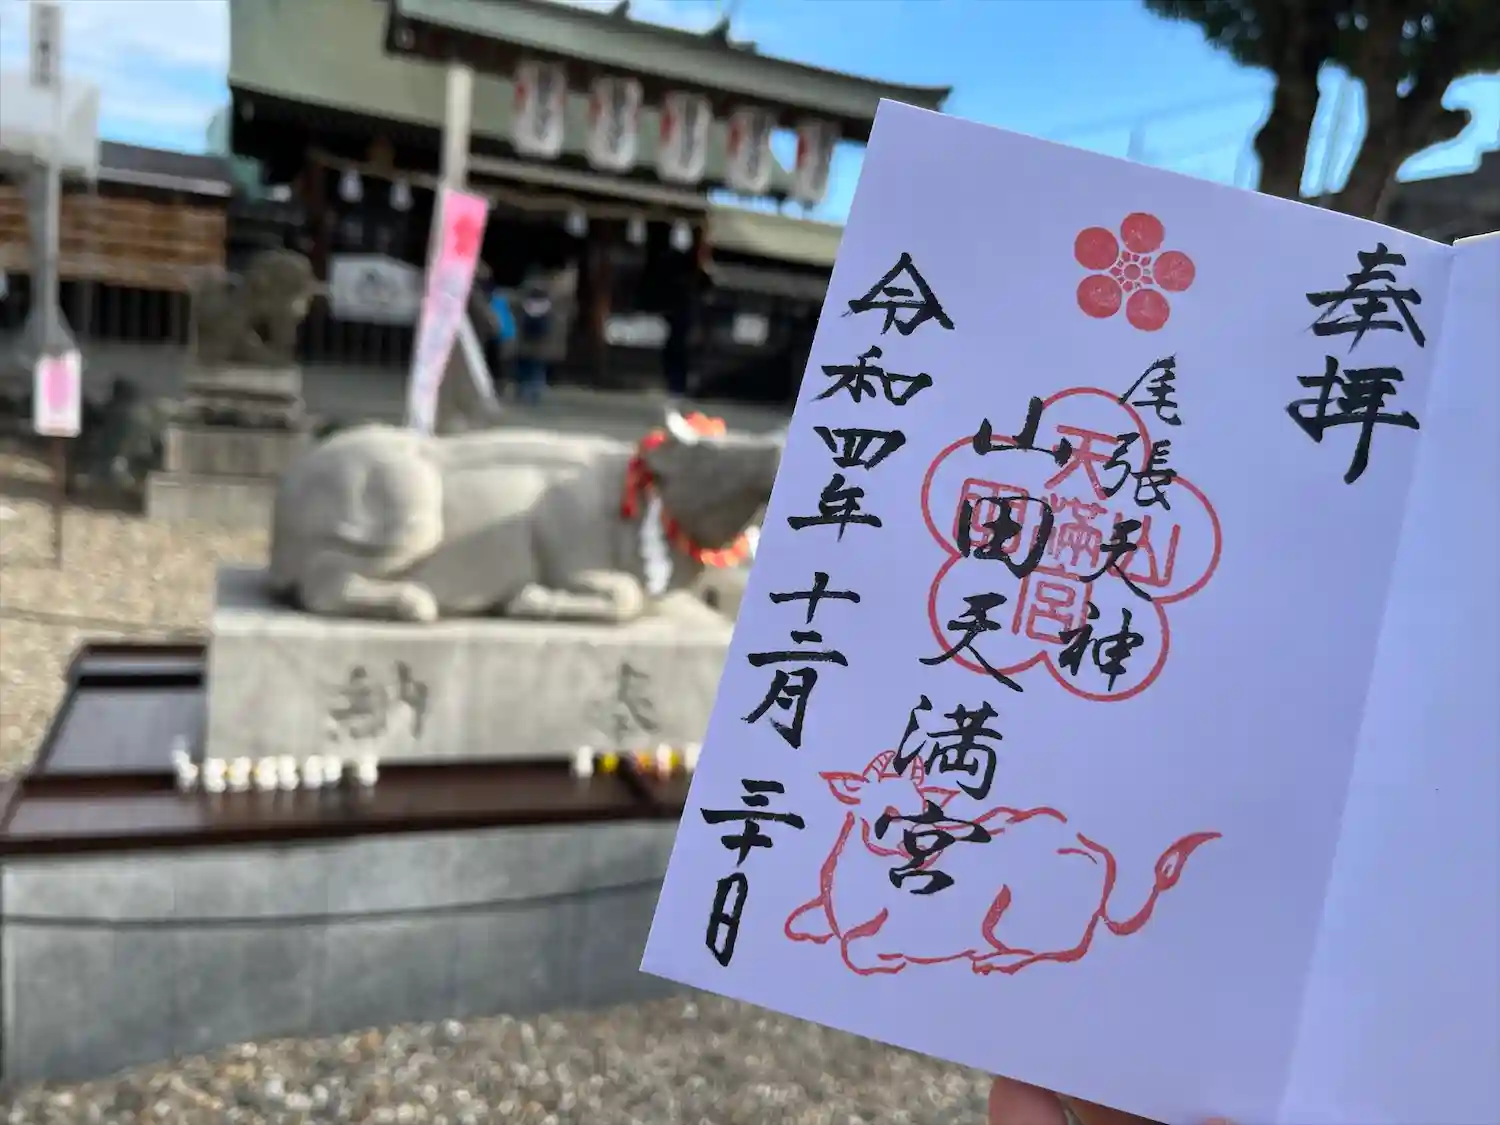 奉拝
尾張天神
山田天満宮
令和四年十二月三十日
山田天満宮
奉納